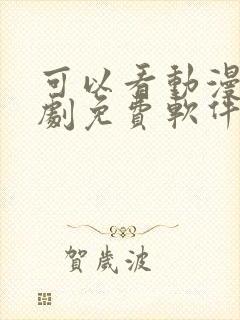 可以看動漫
劇免費軟件
賀歲波